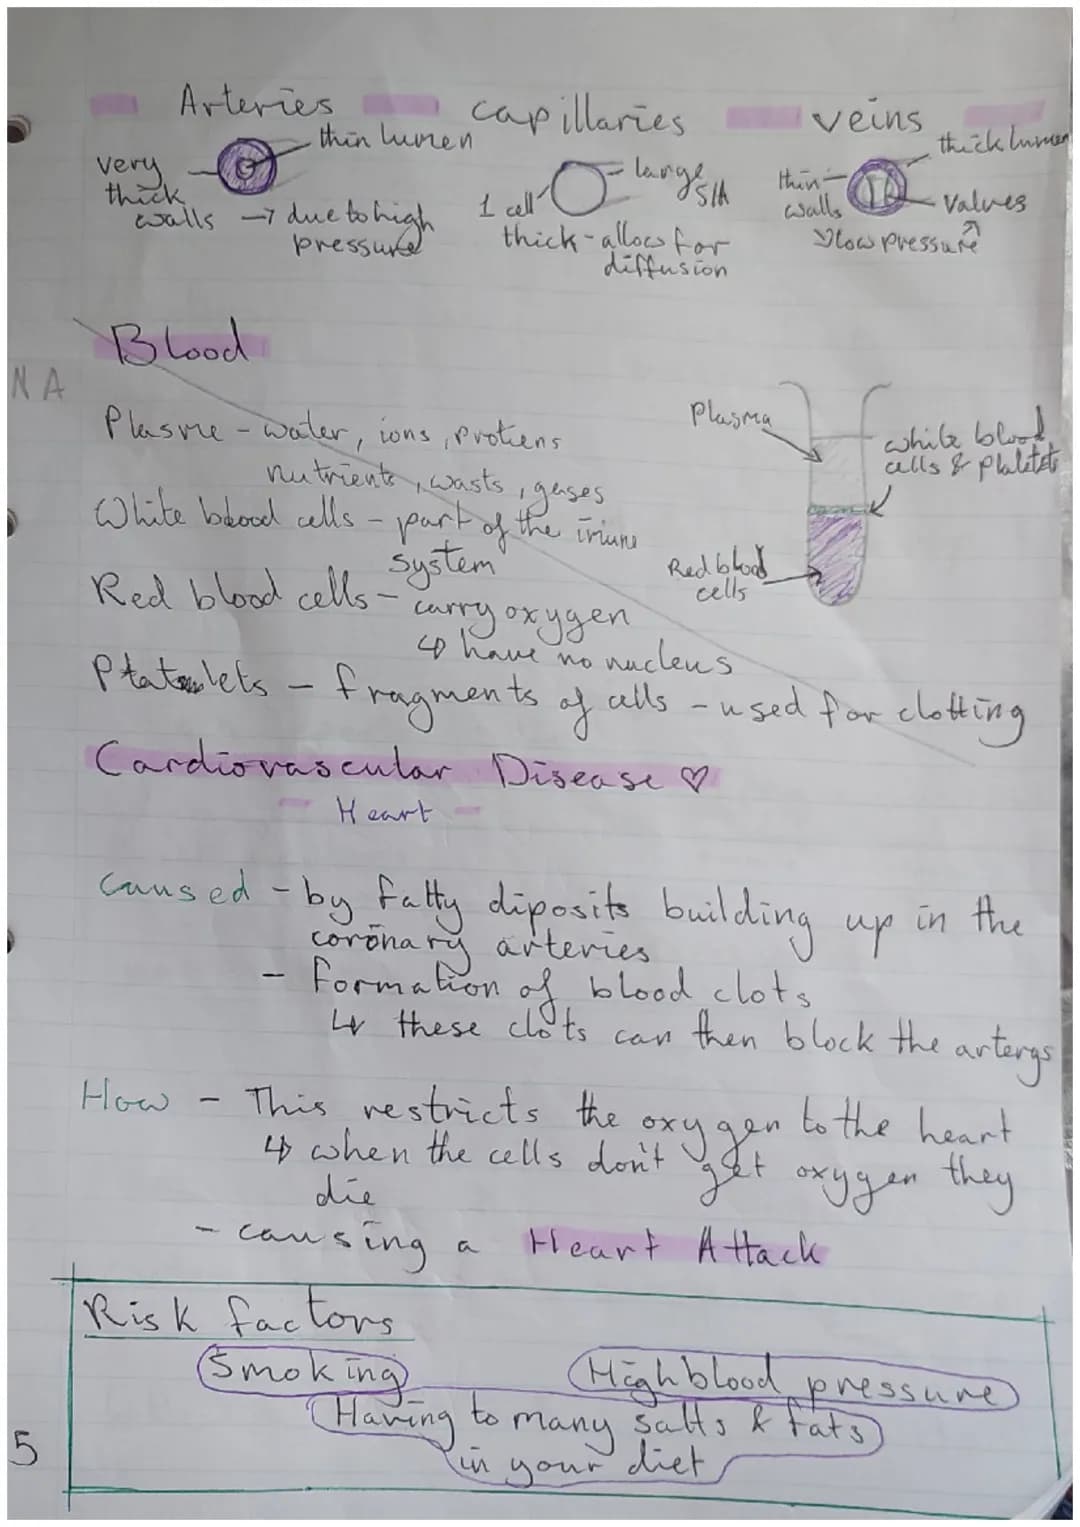 Arteries capillaries veins
thin lumen
very
thick
walls → due to high
pressure
large
S/A
1 cell
thick - allow for
diffusion
thick lumen
thin
walls
valves
↳ low pressure ↗
Blood
NA
Plasme - water, ions, protiens
nutrients, wasts, gases
White blood cells - part of the imune
system
Red blood cells - carry oxygen
↳ have no nucleus
Platelets - fragments of cells - used for clotting
Plasma
white blood
cells & platetets
Red blood
cells
Cardiovascular Disease ♡
- Heart -
Caused - by fatty diposits building up in the
coronary arteries
- Formation of blood clots
↳ these clots can then block the arterys
How - This restricts the oxygen to the heart
↳ when the cells don't get oxygen they
die
- causing a Heart Attack
Risk factors
Smoking High blood pressure
Having to many salts & fats
in your diet
5